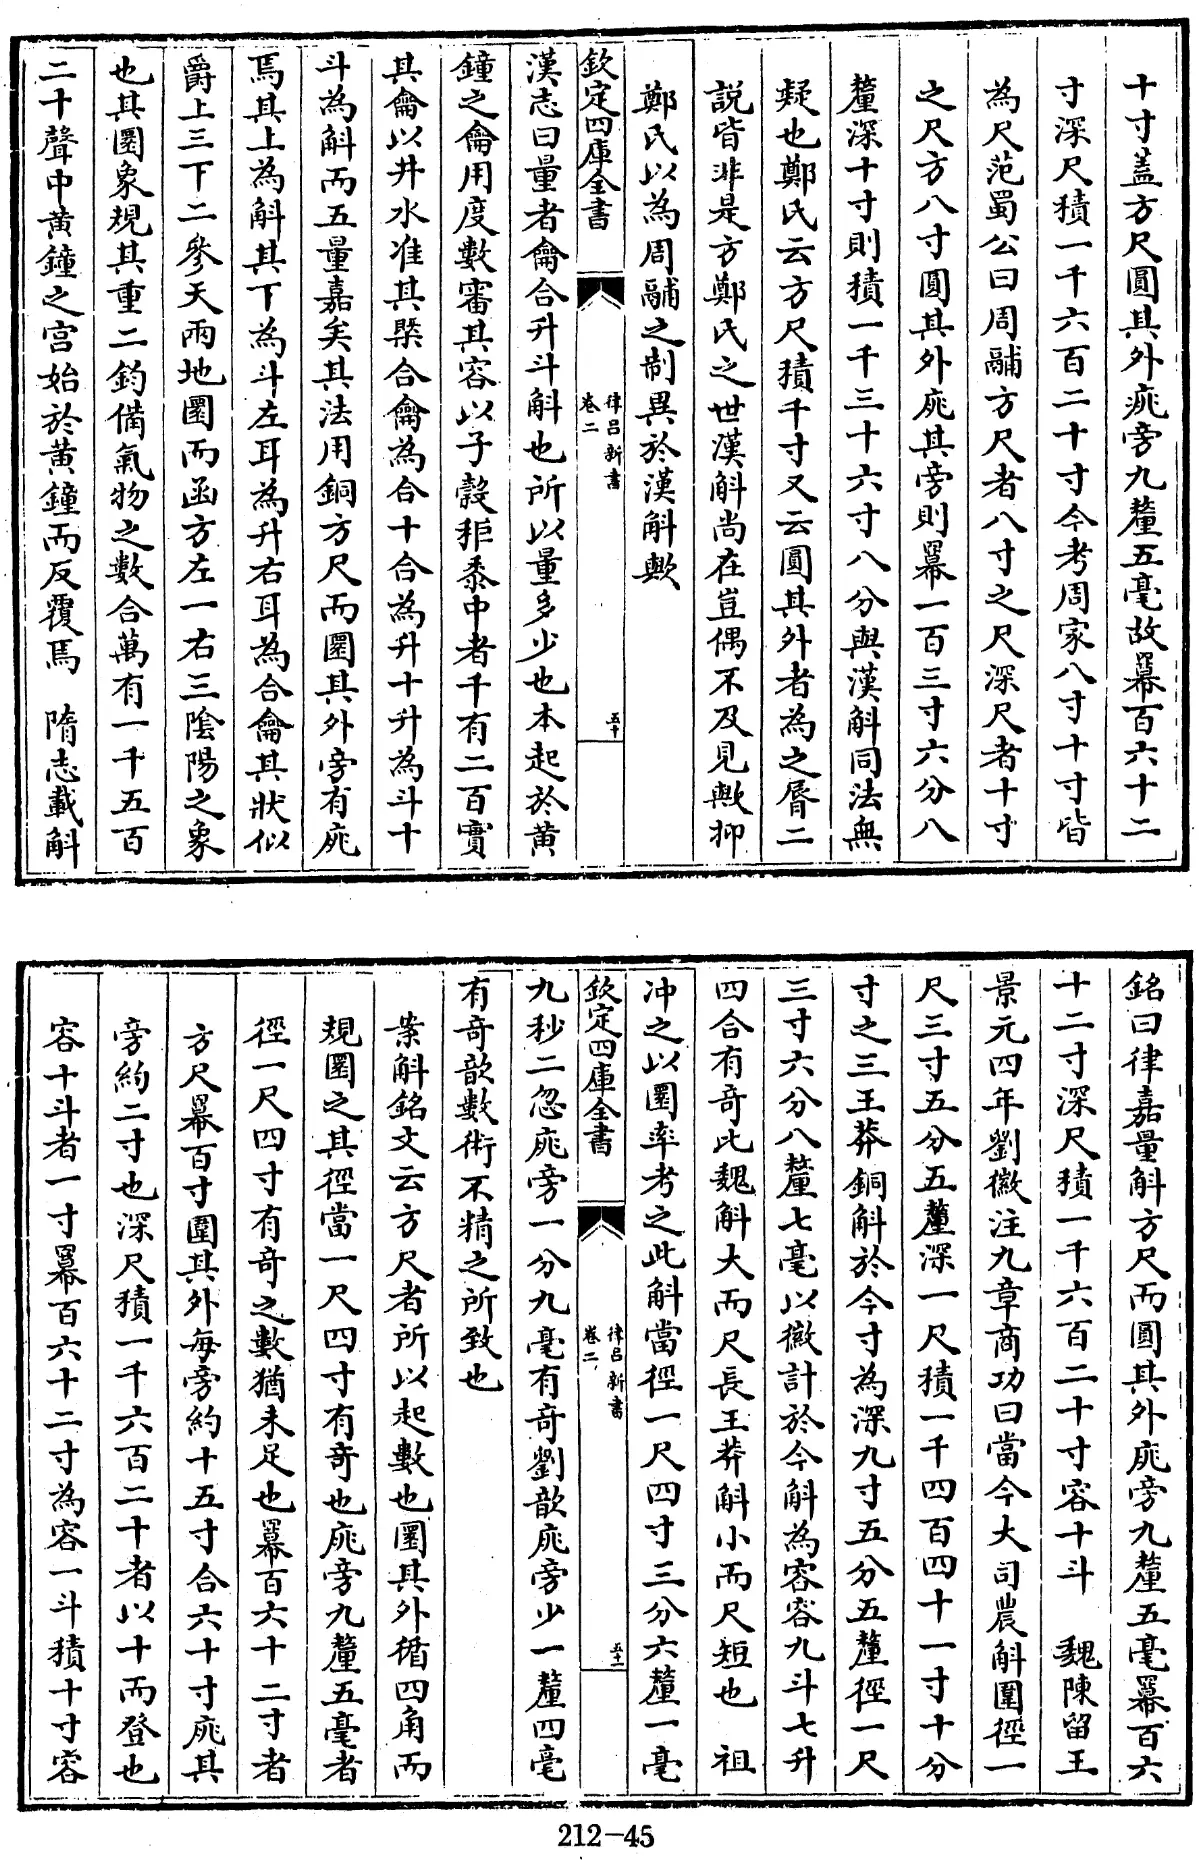 十寸蓋方尺圓其外庣旁九釐五毫故冪百六十二
寸深尺積一千六百二十寸今考周家八寸十寸皆
為尺范蜀公曰周鬴方尺者八寸之尺深尺者十寸
之尺方八寸圓其外庣其旁則冪一百三寸六分八
釐深十寸則積一千三十六寸八分與漢斛同法無
疑也鄭氏云方尺積千寸又云圓其外者為之脣二
說皆非是方鄭氏之世漢斛尚在豈偶不及見歟抑
鄭氏以為周鬴之制異於漢斛歟
欽定四庫全書
律呂新書
卷二
五十
漢志曰量者龠合升斗斛也所以量多少也本起於黃
鐘之龠用度數審其容以子穀秬黍中者千有二百實
其龠以井水准其槩合龠為合十合為升十升為斗十
斗為斛而五量嘉矣其法用銅方尺而圜其外旁有庣
焉其上為斛其下為斗左耳為升右耳為合龠其狀似
爵上三下二參天兩地圜而函方左一右三陰陽之象
也其圜象規其重二鈞備氣物之數合萬有一千五百
二十聲中黃鐘之宮始於黃鐘而反覆焉　隋志載斛
銘曰律嘉量斛方尺而圓其外庣旁九釐五毫冪百六
十二寸深尺積一千六百二十寸容十斗　魏陳留王
景元四年劉徽注九章商功曰當今大司農斛圓徑一
尺三寸五分五釐深一尺積一千四百四十一寸十分
寸之三王莽銅斛於今寸為深九寸五分五釐徑一尺
三寸六分八釐七毫以徽計於今斛為容容九斗七升
四合有奇此魏斛大而尺長王莽斛小而尺短也　祖
冲之以圜率考之此斛當徑一尺四寸三分六釐一毫
欽定四庫全書
律呂新書
卷二
五十一
九秒二忽庣旁一分九毫有奇劉歆庣旁少一釐四毫
有奇歆數術不精之所致也
案斛銘文云方尺者所以起數也圜其外循四角而
規圜之其徑當一尺四寸有奇也庣旁九釐五毫者
徑一尺四寸有奇之數猶未足也冪百六十二寸者
方尺冪百寸圓其外每旁約十五寸合六十寸庣其
旁約二寸也深尺積一千六百二十者以十而登也
容十斗者一寸冪百六十二寸為容一斗積十寸容
212-45